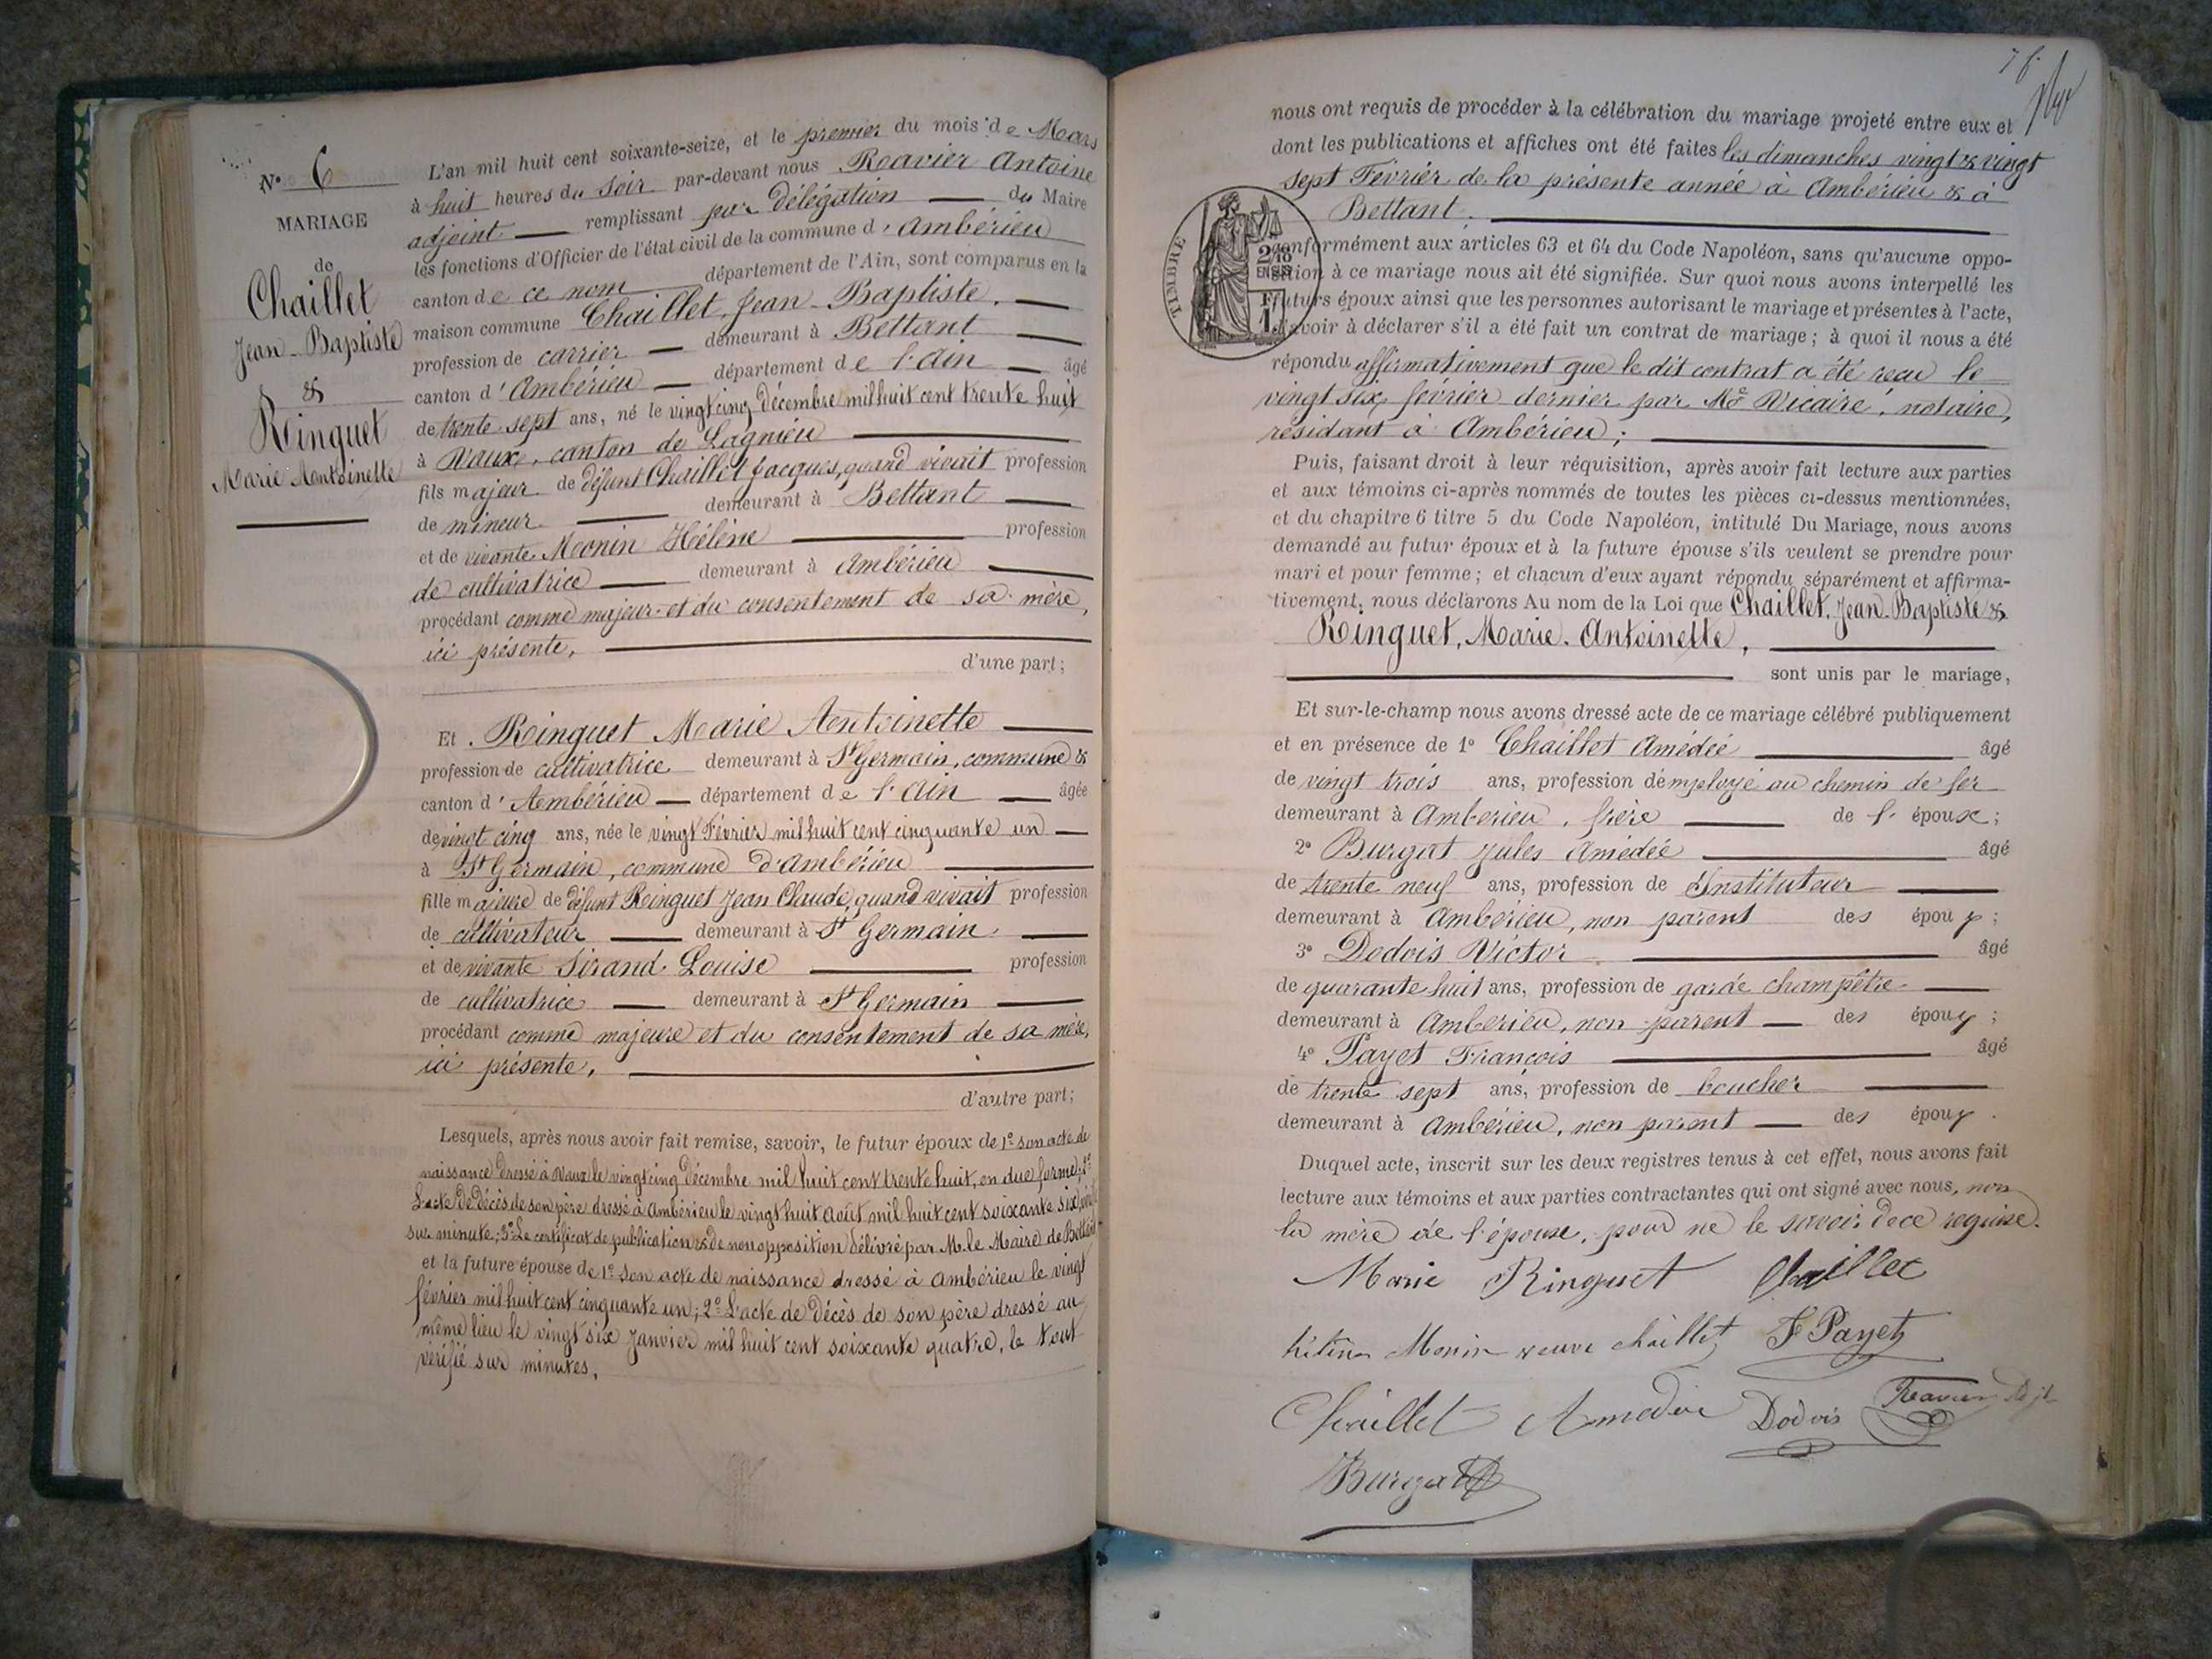 N° 6
MARIAGE
de
Chaillet
Jean-Baptiste
&
Ringuet
Marie Antoinette
L'an mil huit cent soixante-seize, et le premier du mois de Mars
à huit heures du Soir par-devant nous Ravier Antoine
adjoint remplissant par délégation du Maire
les fonctions d'Officier de l'état civil de la commune d'Ambérieu
canton de ce nom département de l'Ain, sont comparus en la
maison commune Chaillet, Jean-Baptiste.
profession de carrier demeurant à Bettant
canton d'Ambérieu département de l'Ain âgé
de trente sept ans, né le vingt cinq Décembre mil huit cent trente huit
à Vaux, canton de Lagnieu
fils majeur de défunt Chaillet Jacques, quand vivait profession
de mineur demeurant à Bettant
et de vivante Monin Hélène profession
de cultivatrice demeurant à Ambérieu
procédant comme majeur et du consentement de sa mère,
ici présente,
d'une part;
Et Ringuet Marie Antoinette
profession de cultivatrice demeurant à St Germain, commune &
canton d'Ambérieu département de l'Ain âgée
de vingt cinq ans, née le vingt Février mil huit cent cinquante un
à St Germain, commune d'Ambérieu
fille majeure de défunt Ringuet Jean Claude, quand vivait profession
de cultivateur demeurant à St Germain.
et de vivante Sirand Louise profession
de cultivatrice demeurant à St Germain
procédant comme majeure et du consentement de sa mère,
ici présente,
d'autre part;
Lesquels, après nous avoir fait remise, savoir, le futur époux de 1° son acte de
naissance dressé à Vaux le vingt cinq Décembre mil huit cent trente huit, en due forme; 2°
L'acte de décès de son père dressé à Ambérieu le vingt huit Août mil huit cent soixante six,
sur minute; 3° Le certificat de publication & de non opposition délivré par M. le Maire de Bettant
et la future épouse de 1° Son acte de naissance dressé à Ambérieu le vingt
février mil huit cent cinquante un; 2° L'acte de décès de son père dressé au
même lieu le vingt six Janvier mil huit cent soixante quatre, le tout
vérifié sur minutes.
nous ont requis de procéder à la célébration du mariage projeté entre eux et
dont les publications et affiches ont été faites les dimanches vingt & vingt
sept Février de la présente année à Ambérieu & à
Bettant.
TIMBRE
2/10
EN SUS
1
conformément aux articles 63 et 64 du Code Napoléon, sans qu'aucune oppo-
sition à ce mariage nous ait été signifiée. Sur quoi nous avons interpellé les
futurs époux ainsi que les personnes autorisant le mariage et présentes à l'acte,
d'avoir à déclarer s'il a été fait un contrat de mariage; à quoi il nous a été
répondu affirmativement que le dit contrat a été reçu le
vingt six février dernier par Me Vicaire, notaire,
résidant à Ambérieu;
Puis, faisant droit à leur réquisition, après avoir fait lecture aux parties
et aux témoins ci-après nommés de toutes les pièces ci-dessus mentionnées,
et du chapitre 6 titre 5 du Code Napoléon, intitulé Du Mariage, nous avons
demandé au futur époux et à la future épouse s'ils veulent se prendre pour
mari et pour femme; et chacun d'eux ayant répondu séparément et affirma-
tivement, nous déclarons Au nom de la Loi que Chaillet, Jean-Baptiste &
Ringuet, Marie-Antoinette,
sont unis par le mariage,
Et sur-le-champ nous avons dressé acte de ce mariage célébré publiquement
et en présence de 1° Chaillet Amédée âgé
de vingt trois ans, profession d'employé au chemin de fer
demeurant à Ambérieu, frère de l' époux;
2° Burgat Jules Amédée âgé
de trente neuf ans, profession de Instituteur
demeurant à Ambérieu, non parent des époux;
3° Dodois Victor âgé
de quarante huit ans, profession de garde champêtre
demeurant à Ambérieu, non parent des époux;
4° Payet François âgé
de trente sept ans, profession de boucher
demeurant à Ambérieu, non parent des époux.
Duquel acte, inscrit sur les deux registres tenus à cet effet, nous avons fait
lecture aux témoins et aux parties contractantes qui ont signé avec nous, non
la mère de l'épouse, pour ne le savoir de ce requise.
Marie Ringuet Chaillet
hélène Monin veuve chaillet F Payet
Chaillet Amedée Dodois Ravier Adjt
Burgat